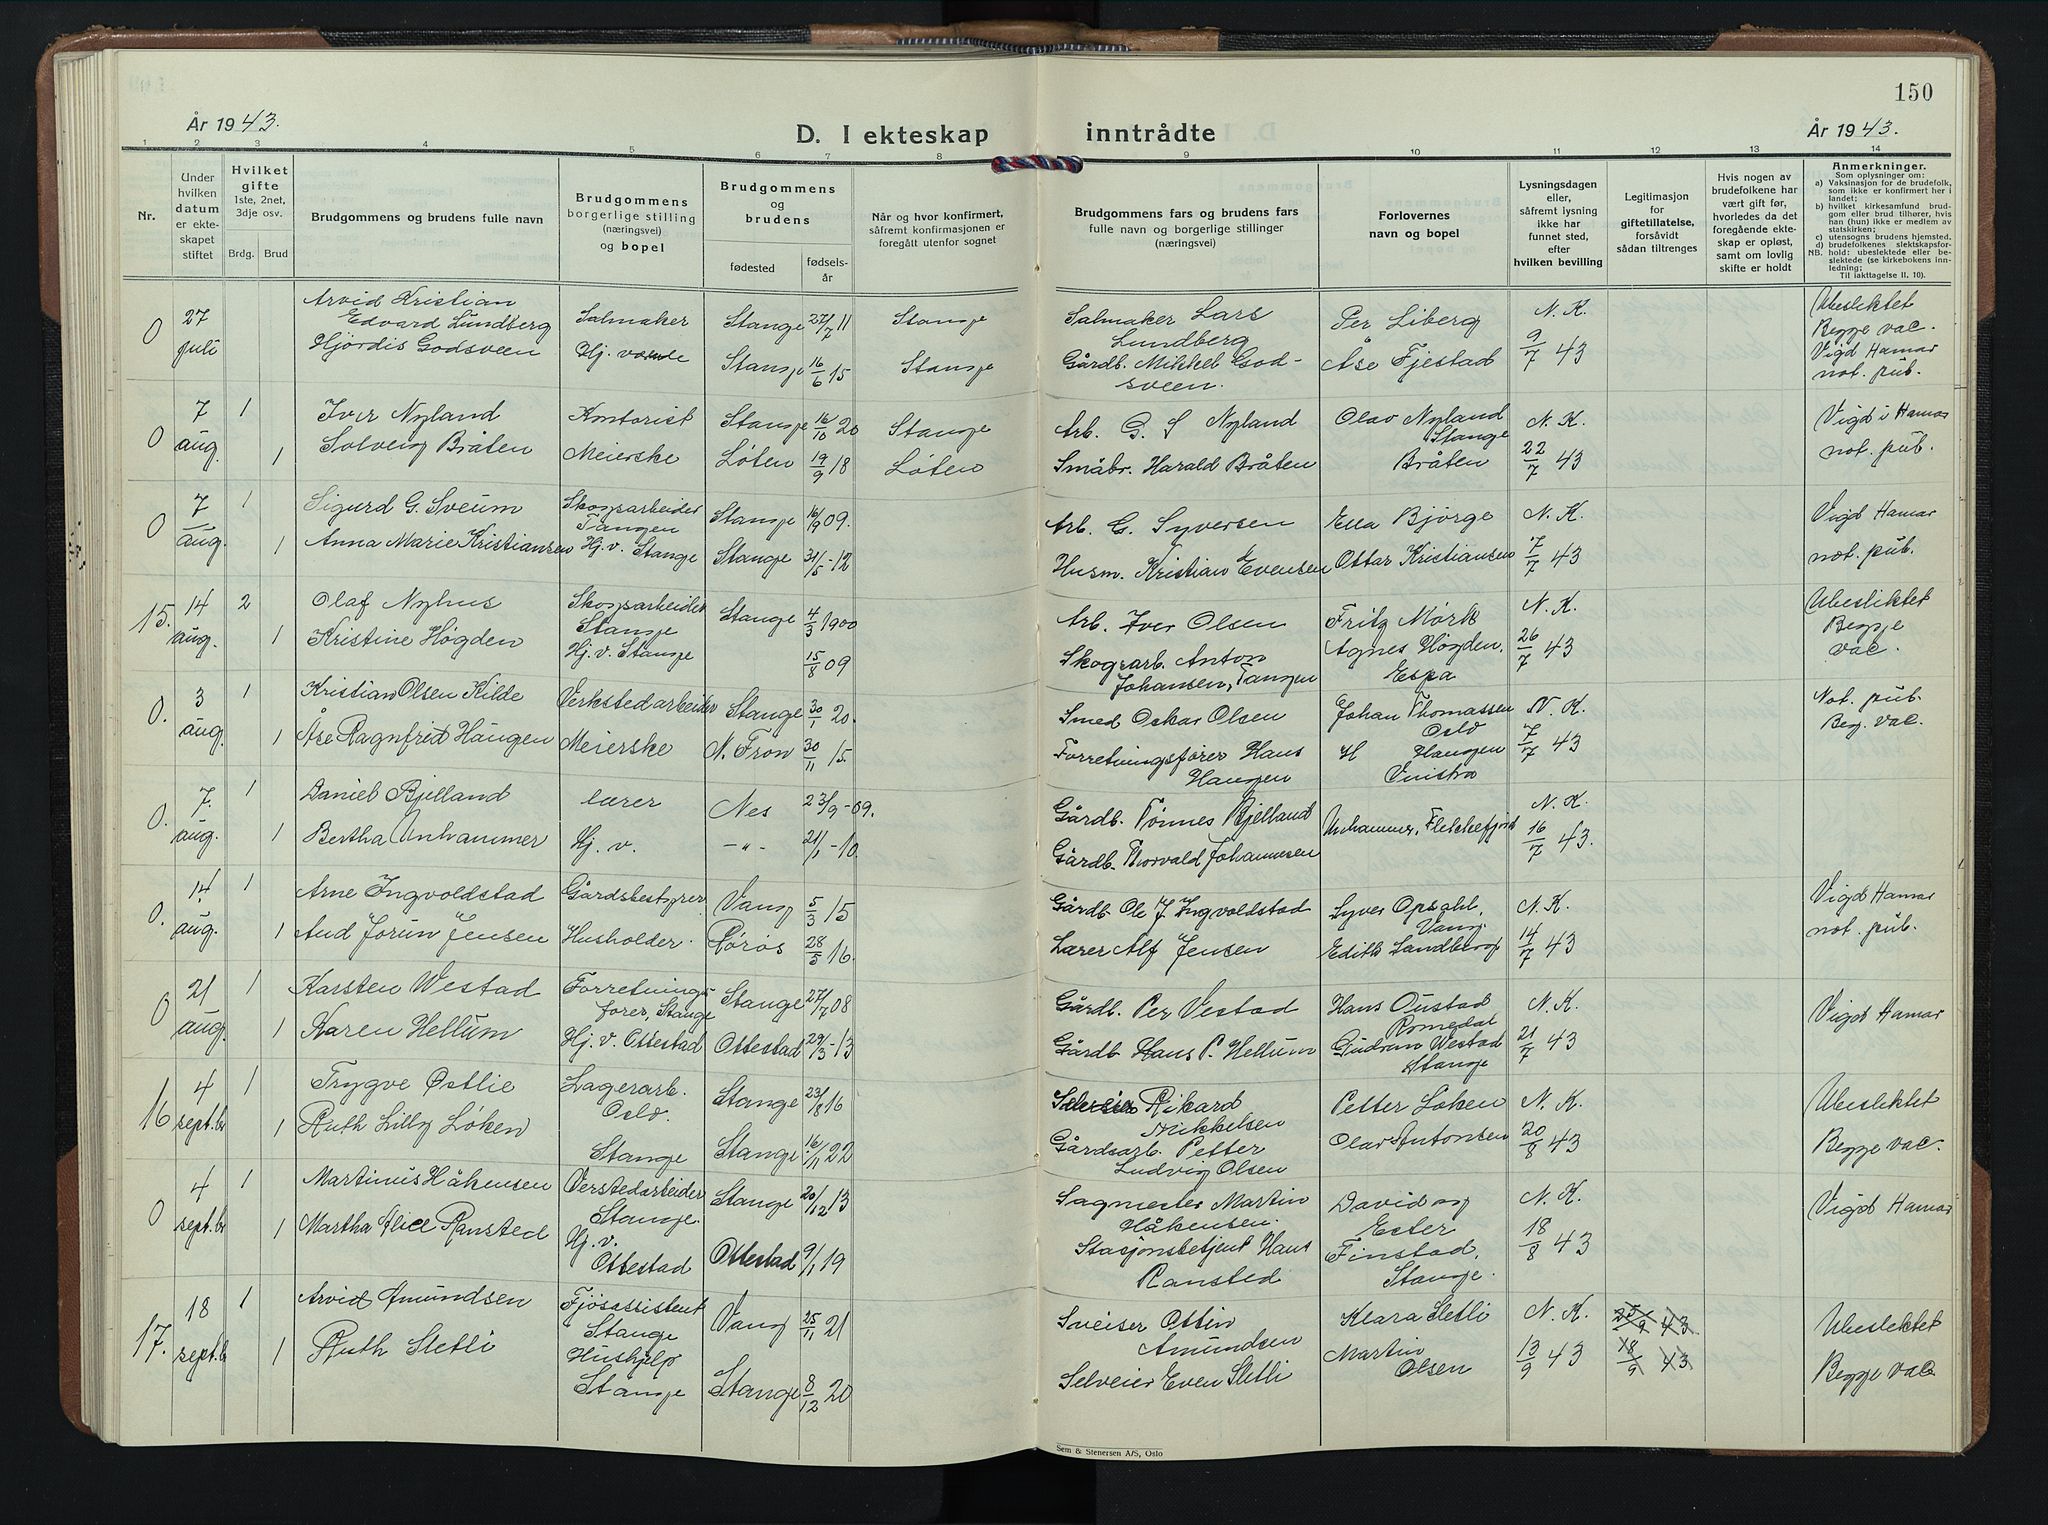 150
År 1943.
D. I ekteskap inntrådte
År 1943.
1 2 3 4 5 6 7 8 9 10 11 12 13 14
Nr.
Under hvilken datum er ekteskapet stiftet
Hvilket gifte 1ste, 2net, 3dje osv.
Brdg. Brud
Brudgommens og brudens fulle navn
Brudgommens borgerlige stilling (næringsvei) og bopel
Brudgommens og brudens
fødested
fødselsår
Når og hvor konfirmert, såfremt konfirmasjonen er foregått utenfor sognet
Brudgommens fars og brudens fars fulle navn og borgerlige stillinger (næringsvei)
Forlovernes navn og bopel
Lysningsdagen eller, såfremt lysning ikke har funnet sted, efter hvilken bevilling
Legitimasjon for giftetillatelse, forsåvidt sådan tiltrenges
Hvis nogen av brudefolkene har vært gift før, hvorledes da det foregående ekteskap er opløst, samt om lovlig skifte er holdt
Anmerkninger.
Som oplysninger om:
a) Vaksinasjon for de brudefolk, som ikke er konfirmert her i landet;
b) hvilket kirkesamfund brudgom eller brud tilhører, hvis han (hun) ikke er medlem av statskirken;
c) utensogns brudens hjemsted.
d) brudefolkenes slektskapsforhold: ubeslektede eller beslektede (se kirkebokens innledning;
NB.
Til iakttagelse II, 10).
0 27 juli Arvid Kristian Edvard Lundberg Salmaker Stange 27/7 11 Stange Salmaker Lars Lundberg Per Liberg N. K. Ubeslektet Begge vac.
Hjördis Godsveen Hj. værende Stange 16/6 15 Stange Gårdb. Mikkel Godsveen. Åse Fjestad 9/7 43 Vigd Hamar not. pub.
0 7 aug. 1 Iver Nyland Kontorist Stange 16/10 20 Stange Arb. G. S Nyland Olav Nyland Stange N. K. Vigd i Hamar
1 Solveig Bråten Meierske Løten 19/9 18 Løten Småbr. Harald Bråten Bråten 22/7 43 not. pub.
0 7 aug. 1 Sigurd G. Sveum Skogsarbeider Tangen Stange 16/9 09. Arb. G. Syversen Ella Bjørge N. K. Vigd Hamar
1 Anna Marie Kristiansen Hj. v. Stange Stange 31/5-12 Husm. Kristian Evensen Ottar Kristiansen 7/7 43 not. pub.
15. 14 aug. 2 Olaf Nyhus Skogsarbeider Stange Stange 4/3 1900 Arb. Iver Olsen Fritz Mørk N. K. Ubeslektet
1 Kristine Høgden Hj. v. Stange 15/8 09 Skogsarb. Anton Johansen, Tangen Agnes Høgden, Espa 26/7 43 Begge vac.
0. 3 aug. 1 Kristian Olsen Kilde Verkstedarbeider Stange 30/1 20. Smed Oskar Olsen Johan Thomassen Oslo N. K. Not. pub
1 Åse Ragnfrid Haugen Meierske N. Fron 30/11 15. Forretningsfører Hans Haugen H Haugen Vinstra 7/7 43 Beg. vac.
0. 7. aug. 1 Daniel Bjelland lærer Nes 23/9-09. Gårdb. Tønnes Bjelland N. K.
1 Bertha Unhammer Hj. v. -"- 21/1-10 Gårdb. Thorvald Johannesen Unhammer, Flekkefjord 16/7 43.
0. 14. aug. 1 Arne Ingvoldstad Gårdsbestyrer Vang 5/3 15 Gårdb Ole J Ingvoldstad Syver Opsahl, Vang. N. K. Vigd Hamar
1 Aud Jorun Jensen Husholder. Røros 28/5 16. Lærer Alf Jensen Edith Landberg 14/7 43 not. pub.
0 21 aug. 1 Karsten Westad Forretningsfører, Stange Stange 27/7 08 Gårdb. Per Vestad Hans Oustad Romedal N. K. Vigd Hamar
1 Karen Hellum Hj. v. Ottestad Ottestad 29/3-13 Gårdb Hans P. Hellum Gudrun Westad Stange 21/7 43
16 4 septbr 1 Trygve Østlie Lagerarb. Oslo. Stange 23/8 16 Rikard Mikkelsen Petter Løken N. K. Ubeslektet
1 Ruth Lilly Løken Stange Stange 16/11 22 Gårdsarb. Petter Ludvig Olsen Olav Antonsen 20/8 43 Begge vac.
0 4 septbr 1 Martinus Håkensen Verstedarbeider Stange. Stange 20/12 13 Sagmester Martin Håkensen. David og N. K. Vigd Hamar
1 Martha Alice Ransted Hj. v. Ottestad Ottestad 9/1 19 Stasjonsbetjent Hans Ransted Ester Finstad, Stange. 18/8 43
17. 18 septb 1 Arvid Amundsen Fjøsassistent Stange Vang 25/11 21 Sveiser Ottin Amundsen Klara Sletli N. K. 25/9 43 Ubeslektet
1 Ruth Sletli Hushjelp Stange Stange 8/12 20 Selveier Even Sletli Martin Olsen 13/9 43 18/9 43 Begge vac
Sem & Stenersen A/S, Oslo